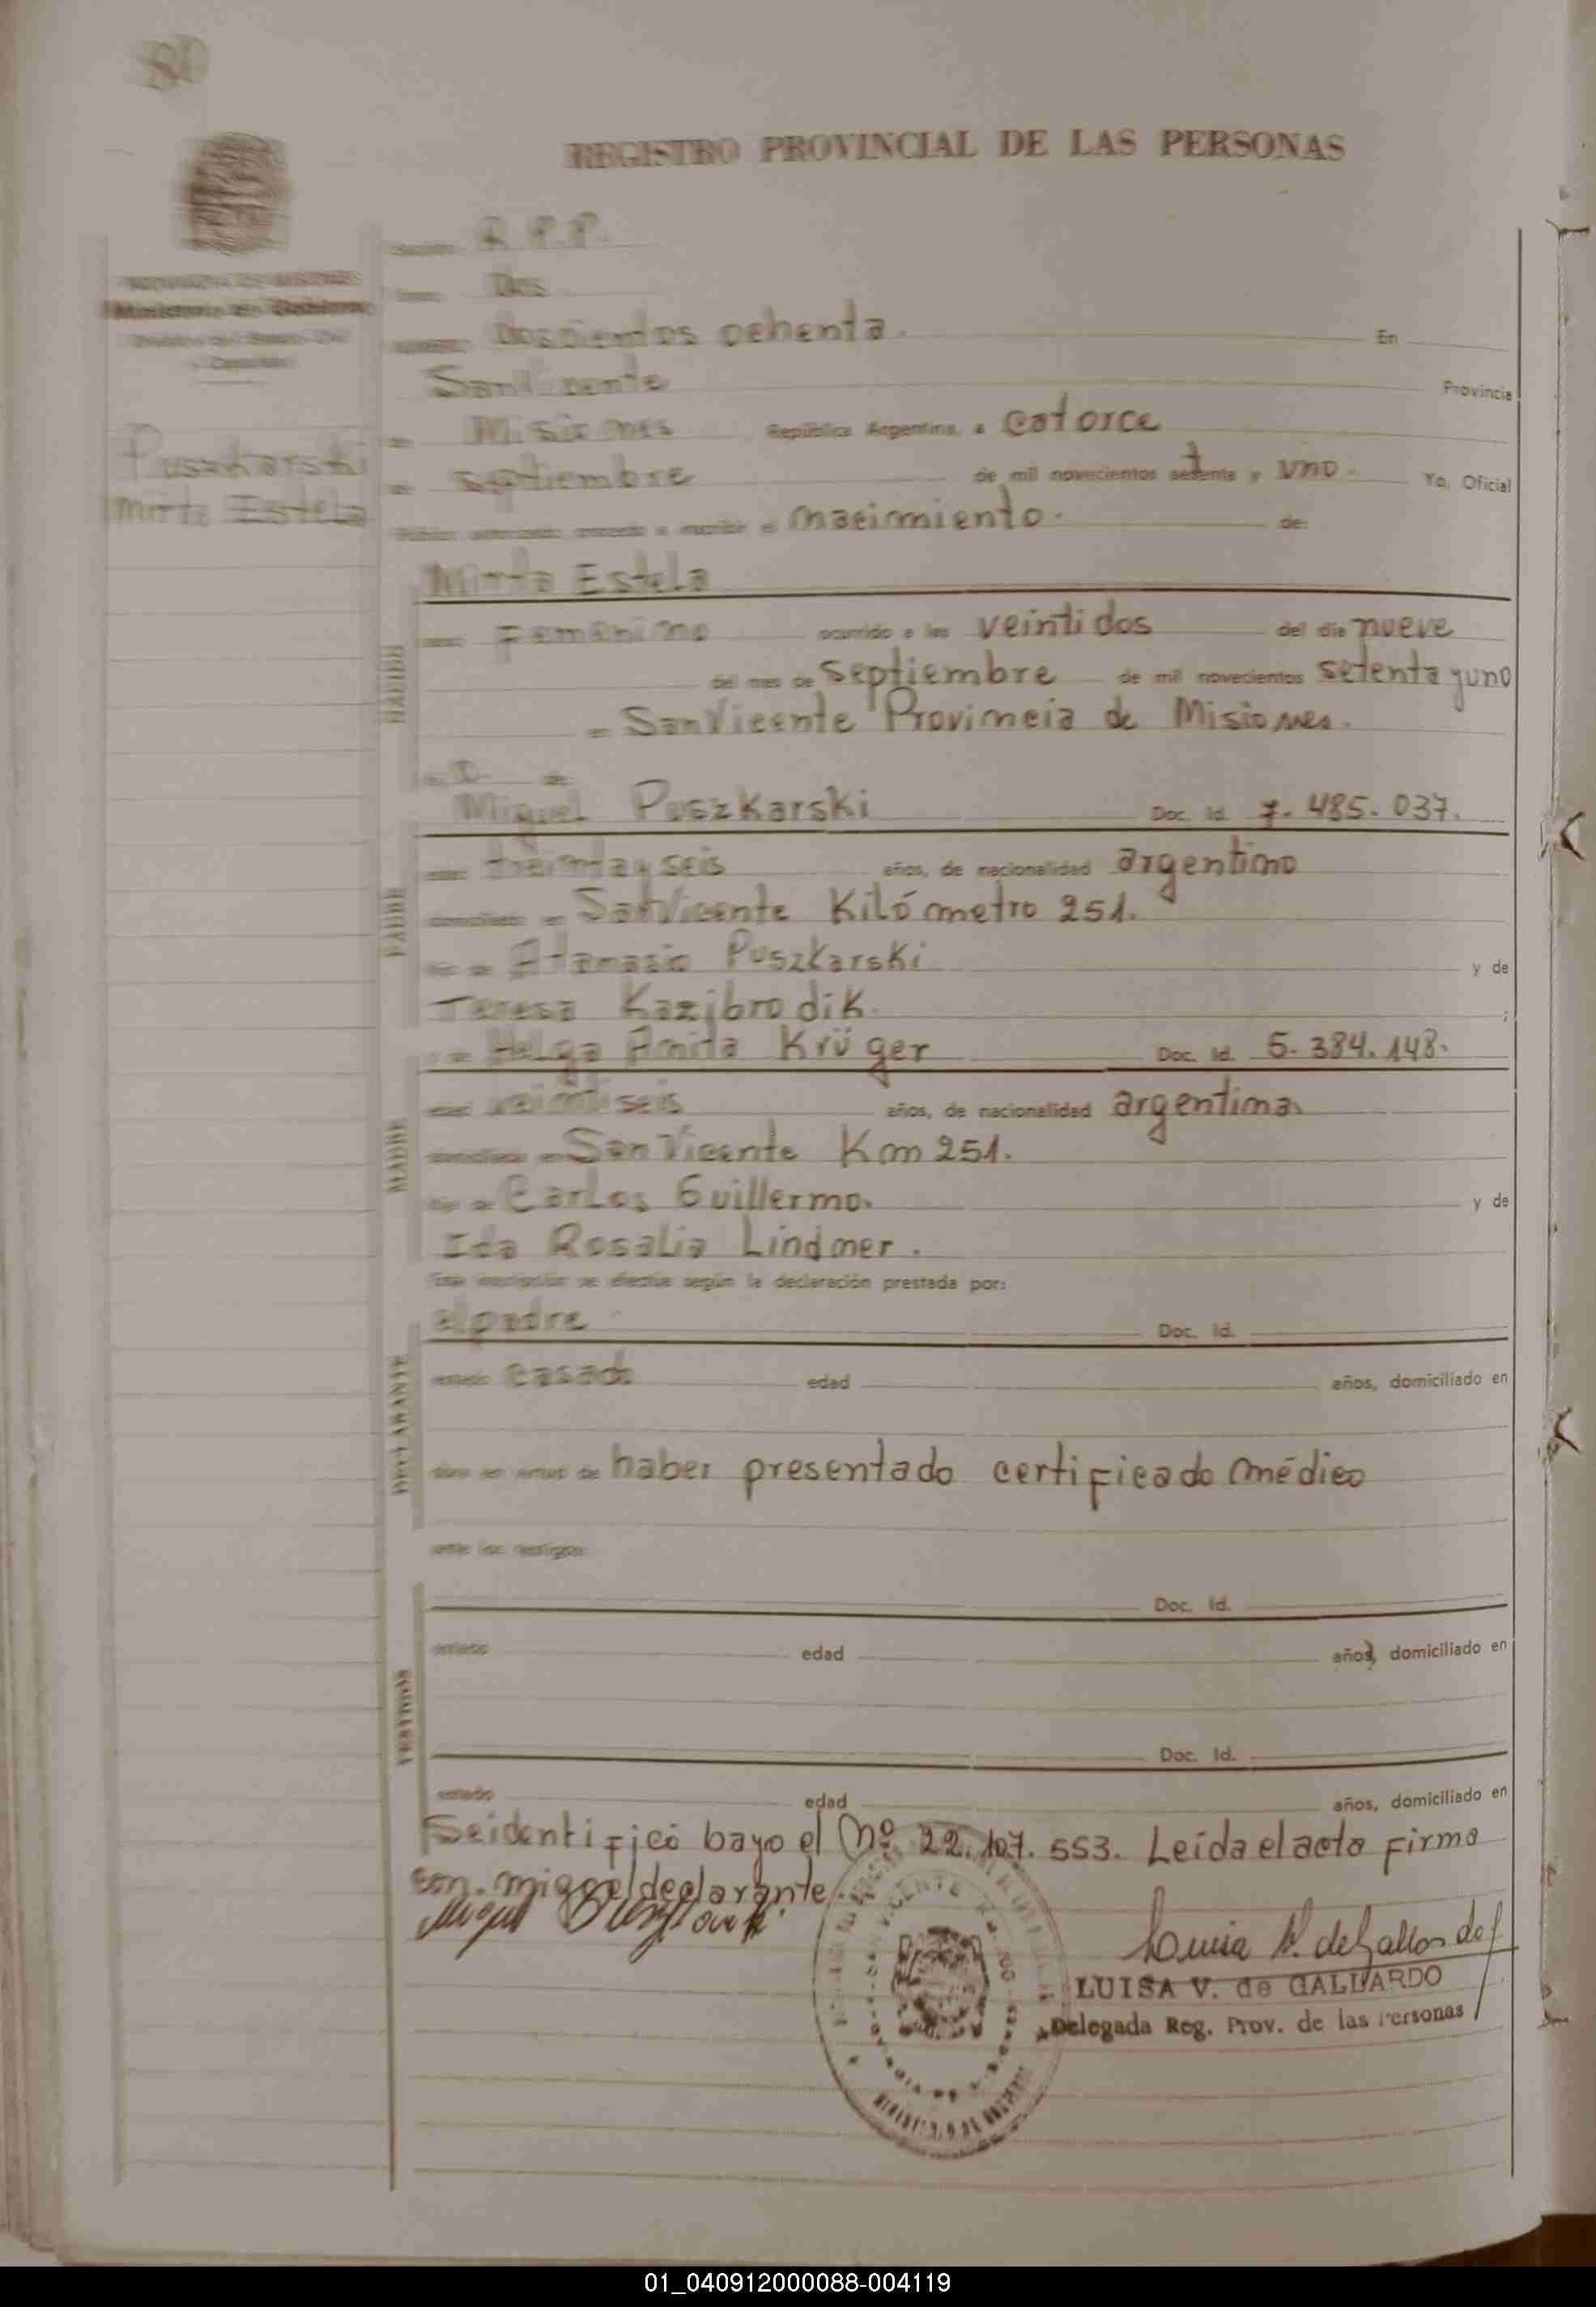 80
REGISTRO PROVINCIAL DE LAS PERSONAS
R.P.P.
Dos
Ministerio de Gobierno
Doscientos ochenta. En
San Vicente Provincia
de Misiones República Argentina, a catorce
de septiembre de mil novecientos setenta y uno. Yo, Oficial
Público autorizado procedo a inscribir el nacimiento. de:
Puszkarski
Mirta Estela
Mirta Estela
NACIDO
sexo Femenino ocurrido a las veintidos del día nueve
del mes de septiembre de mil novecientos setenta y uno
en San Vicente Provincia de Misiones.
Miguel Puszkarski Doc. Id. 7.485.037.
PADRE
edad treinta y seis años, de nacionalidad argentino
domiciliado en San Vicente Kilómetro 251.
hijo de Atanasio Puszkarski y de
Teresa Kazibrodik.
de Helga Anita Krüger Doc. Id. 5.384.148.
MADRE
edad veintiseis años, de nacionalidad argentina
domiciliada en San Vicente Km 251.
hija de Carlos Guillermo. y de
Ida Rosalia Lindner.
Esta inscripción se efectúa según la declaración prestada por:
el padre Doc. Id.
DECLARANTE
estado casado edad años, domiciliado en
obra en virtud de haber presentado certificado médico
ante los testigos:
Doc. Id.
TESTIGOS
estado edad años, domiciliado en
Doc. Id.
estado edad años, domiciliado en
Se identificó bayo el Nº 22.107.553. Leída el acta firma
con migo el declarante.
Miguel Puszkarski
Luisa V. de Gallardo
LUISA V. de GALLARDO
Delegada Reg. Prov. de las Personas
01_040912000088-004119